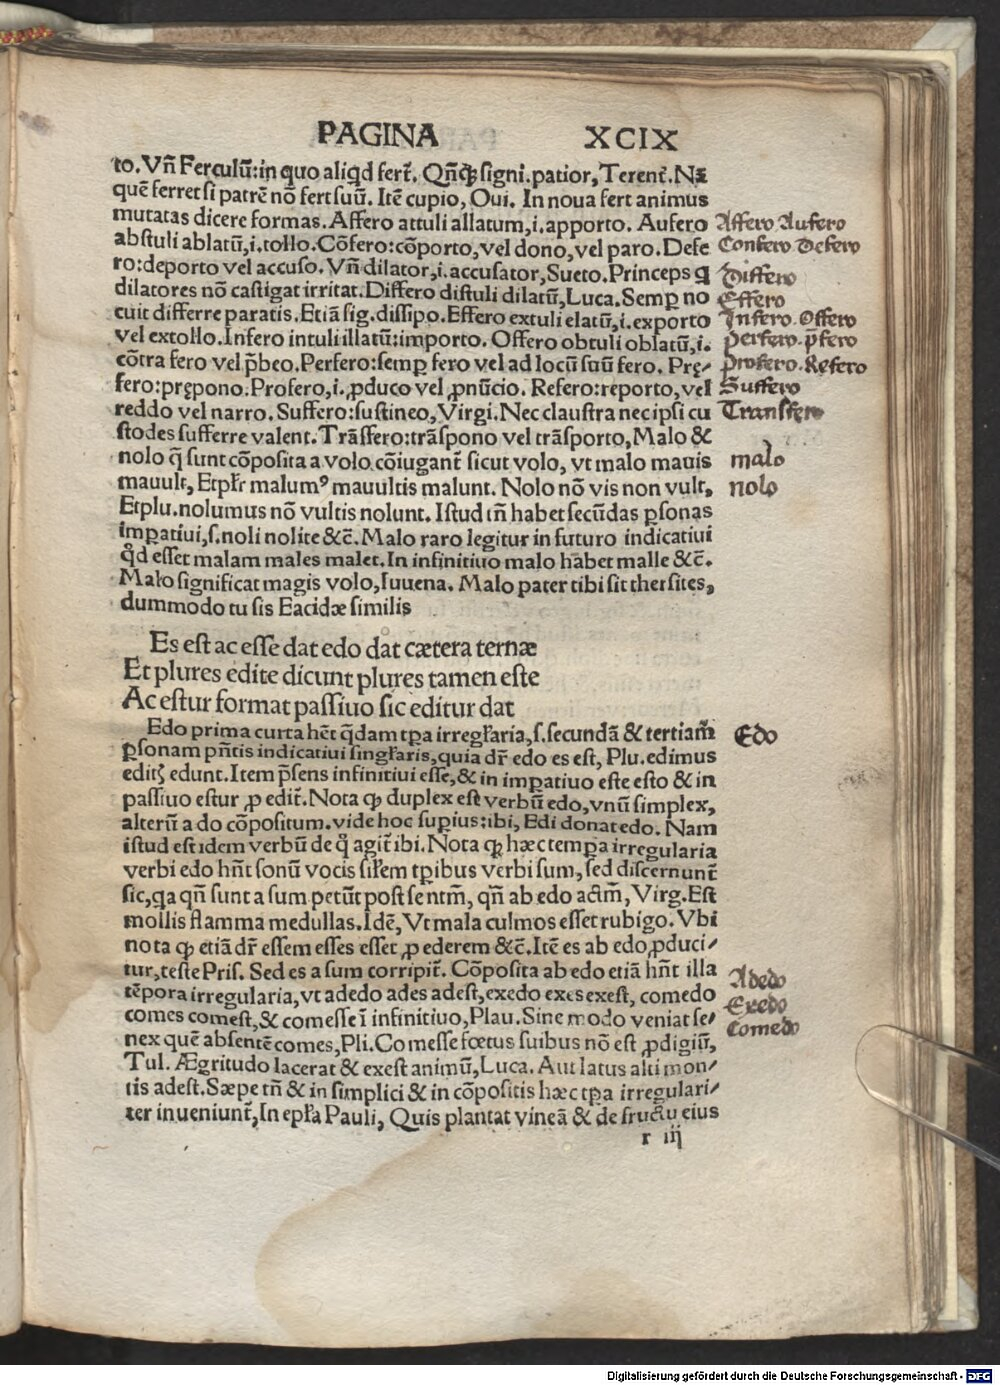 PAGINA XCIX
to. Vn̄ Ferculū: in quo aliqd fert̄. Qn̄cꝙ signi. patior, Terent̄. Nā
quē ferret si patrē nō fert suū. Itē cupio, Oui. In noua fert animus
mutatas dicere formas. Affero attuli allatum, i. apporto. Aufero
abstuli ablatū, i. tollo. Cōfero: cōporto, vel dono, vel paro. Defe
ro: deporto vel accuso. Vn̄ dilator, i. accusator, Sueto. Princeps q
dilatores nō castigat irritat. Differo distuli dilatū, Luca. Semꝑ no
cuit differre paratis. Etiā sig. dissipo. Effero extuli elatū, i. exporto
vel extollo. Infero intuli illatū: importo. Offero obtuli oblatū, i.
cōtra fero vel p̄beo. Perfero: semꝑ fero vel ad locū suū fero. Prę⸗
fero: prępono. Profero, i. ꝓduco vel ꝓnūcio. Refero: reporto, vel
reddo vel narro. Suffero: sustineo, Virgi. Nec claustra nec ipsi cu
stodes sufferre valent. Trāsfero: trāspono vel trāsporto, Malo &
nolo q̄ sunt cōposita a volo cōiugant̄ sicut volo, vt malo mauis
mauult, Et płr malumꝰ mauultis malunt. Nolo nō vis non vult,
Et plu. nolumus nō vultis nolunt. Istud tn̄ habet secūdas ꝑsonas
imꝑatiui, s. noli nolite &c̄. Malo raro legitur in futuro indicatiui
qd̓ esset malam males malet. In infinitiuo malo habet malle &c̄.
Malo significat magis volo, Iuuena. Malo pater tibi sit thersites,
dummodo tu sis Eacidæ similis
Es est ac esse dat edo dat cætera ternæ
Et plures edite dicunt plures tamen este
Ac estur format passiuo sic editur dat
Edo prima curta hēt q̄dam tꝑa irregłaria, s. secundā & tertiam̄
ꝑsonam pn̄tis indicatiui singłaris, quia dr̄ edo es est, Plu. edimus
editꝭ edunt. Item p̄sens infinitiui esse, & in imꝑatiuo este esto & in
passiuo estur ꝓ edit̄. Nota ꝙ duplex est verbū edo, vnū simplex,
alterū a do cōpositum. vide hoc supius: ibi, Edi donat edo. Nam
istud est idem verbū de q̊ agit̄ ibi. Nota ꝙ hæc tempꝑa irregularia
verbi edo hn̄t sonū vocis siłem tꝑibus verbi sum, sed discernunt̄
sic, qa qn̄ sunt a sum petūt post se ntm̄, qn̄ ab edo actm̄, Virg. Est
mollis flamma medullas. Idē, Vt mala culmos esset rubigo. Vbi
nota ꝙ etiā dr̄ essem esses esset ꝓ ederem &c̄. Itē es ab edo ꝓduci⸗
tur, teste Pris. Sed es a sum corripit̄. Cōposita ab edo etiā hn̄t illa
tēpora irregularia, vt adedo ades adest, exedo exes exest, comedo
comes comest, & comesse ī infinitiuo, Plau. Sine modo veniat se⸗
nex quē absentē comes, Pli. Comesse fœtus suibus nō est ꝓdigiū,
Tul. Ægritudo lacerat & exest animū, Luca. Aut latus alti mon⸗
tis adest. Sæpe tn̄ & in simplici & in cōpositis hæc tꝑa irregulari⸗
ter inueniunt̄, In epła Pauli, Quis plantat vineā & de fructu eius
r iij
Affero Aufero
Confero Defero
Differo
Effero
Infero. Offero
perfero. p̄fero
profero. Refero
Suffero
Transfero
malo
nolo
Edo
Adedo
Exedo
Comedo
Digitalisierung gefördert durch die Deutsche Forschungsgemeinschaft - DFG